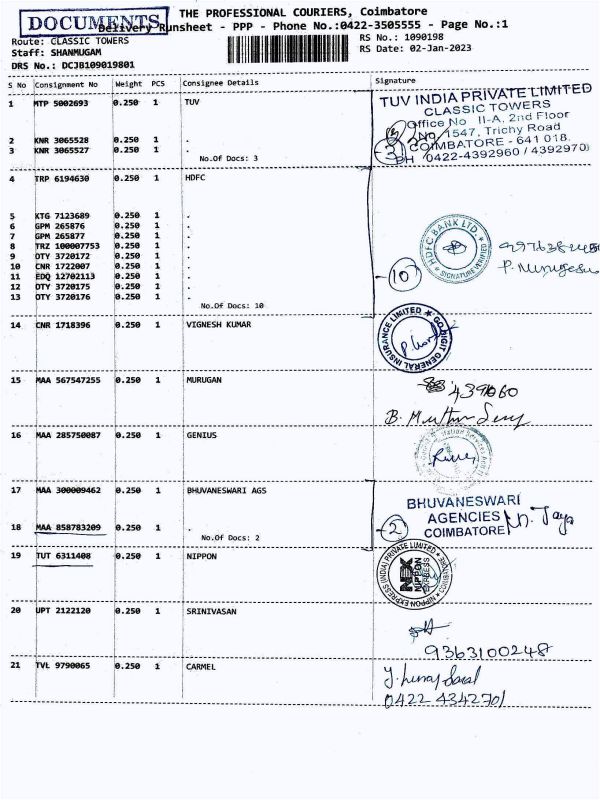 DOCUMENTS
THE PROFESSIONAL COURIERS, Coimbatore
Delivery Runsheet - PPP - Phone No.:0422-3505555 - Page No.:1
Route: CLASSIC TOWERS
RS No.: 1090198
Staff: SHANMUGAM
RS Date: 02-Jan-2023
DRS No.: DCJB109019801
S No Consignment No Weight PCS Consignee Details Signature
1 MTP 5002693 0.250 1 TUV
TUV INDIA PRIVATE LIMITED
CLASSIC TOWERS
Office No II-A, 2nd Floor
No 1547, Trichy Road
COIMBATORE - 641 018.
PH 0422-4392960 / 4392970
3
2 KNR 3065528 0.250 1 .
3 KNR 3065527 0.250 1 .
No.Of Docs: 3
4 TRP 6194630 0.250 1 HDFC
5 KTG 7123689 0.250 1 .
6 GPM 265876 0.250 1 .
7 GPM 265877 0.250 1 .
8 TRZ 100007753 0.250 1 .
9 OTY 3720172 0.250 1 .
10 CNR 1722007 0.250 1 .
11 EDQ 12702113 0.250 1 .
12 OTY 3720175 0.250 1 .
13 OTY 3720176 0.250 1 .
No.Of Docs: 10
10
HDFC BANK LTD.
SIGNATURE VERIFIED
14 CNR 1718396 0.250 1 VIGNESH KUMAR
GO DIGIT GENERAL INSURANCE LIMITED
15 MAA 567547255 0.250 1 MURUGAN
16 MAA 285750087 0.250 1 GENIUS
17 MAA 300009462 0.250 1 BHUVANESWARI AGS
BHUVANESWARI
AGENCIES
COIMBATORE
2
18 MAA 858783209 0.250 1 .
No.Of Docs: 2
19 TUT 6311408 0.250 1 NIPPON
NIPPON EXPRESS (INDIA) PRIVATE LIMITED
NEX
NIPPON
EXPRESS
20 UPT 2122120 0.250 1 SRINIVASAN
9363100248
21 TVL 9790065 0.250 1 CARMEL
0422 4342701